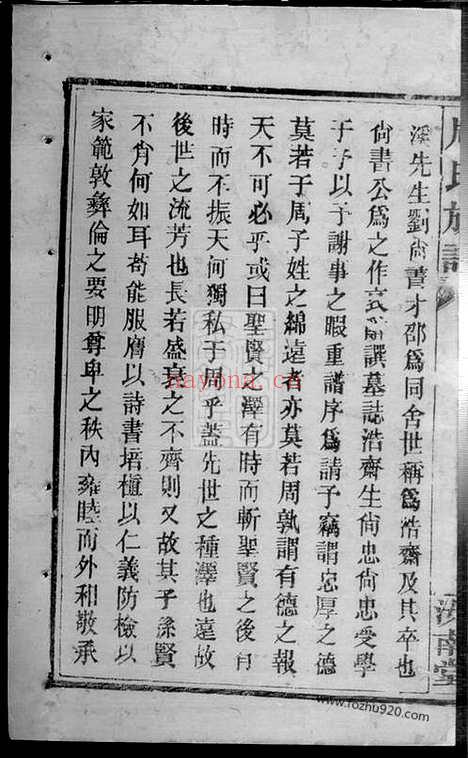 周氏族譜
汝南堂
溪先生劉尚書才邵爲同舍世稱爲浩齋及其卒也
尙書公爲之作 譔墓誌浩齋生尙忠尙忠受學
于予以予謝事之暇重譜序爲請予竊謂忠厚之德
莫若于周子姓之綿遠者亦莫若周孰謂有德之報
天不可必乎或曰聖賢之澤有時而斬聖賢之後
時而不振天何獨私于周乎蓋先世之種澤也遠故
後世之流芳也長若盛衰之不齊則又故其子孫賢
不肖何如耳苟能服膺以詩書培植以仁義防檢以
家範敦彝倫之要明尊卑之秩內雍睦而外和敬承
nayona.cn
www.rozhu920.com